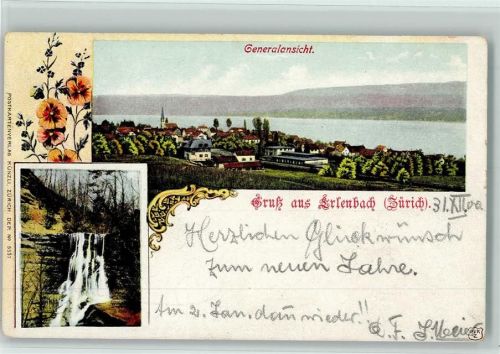 Generalansicht.
POSTKARTENVERLAG KÜNZLI, ZÜRICH. DEP. No 5531
Gruß aus Erlenbach (Zürich).
31.XII.02
Herzlichen Glückwünsch
zum neuen Jahre.
Am 2. Jan. dann wieder!!